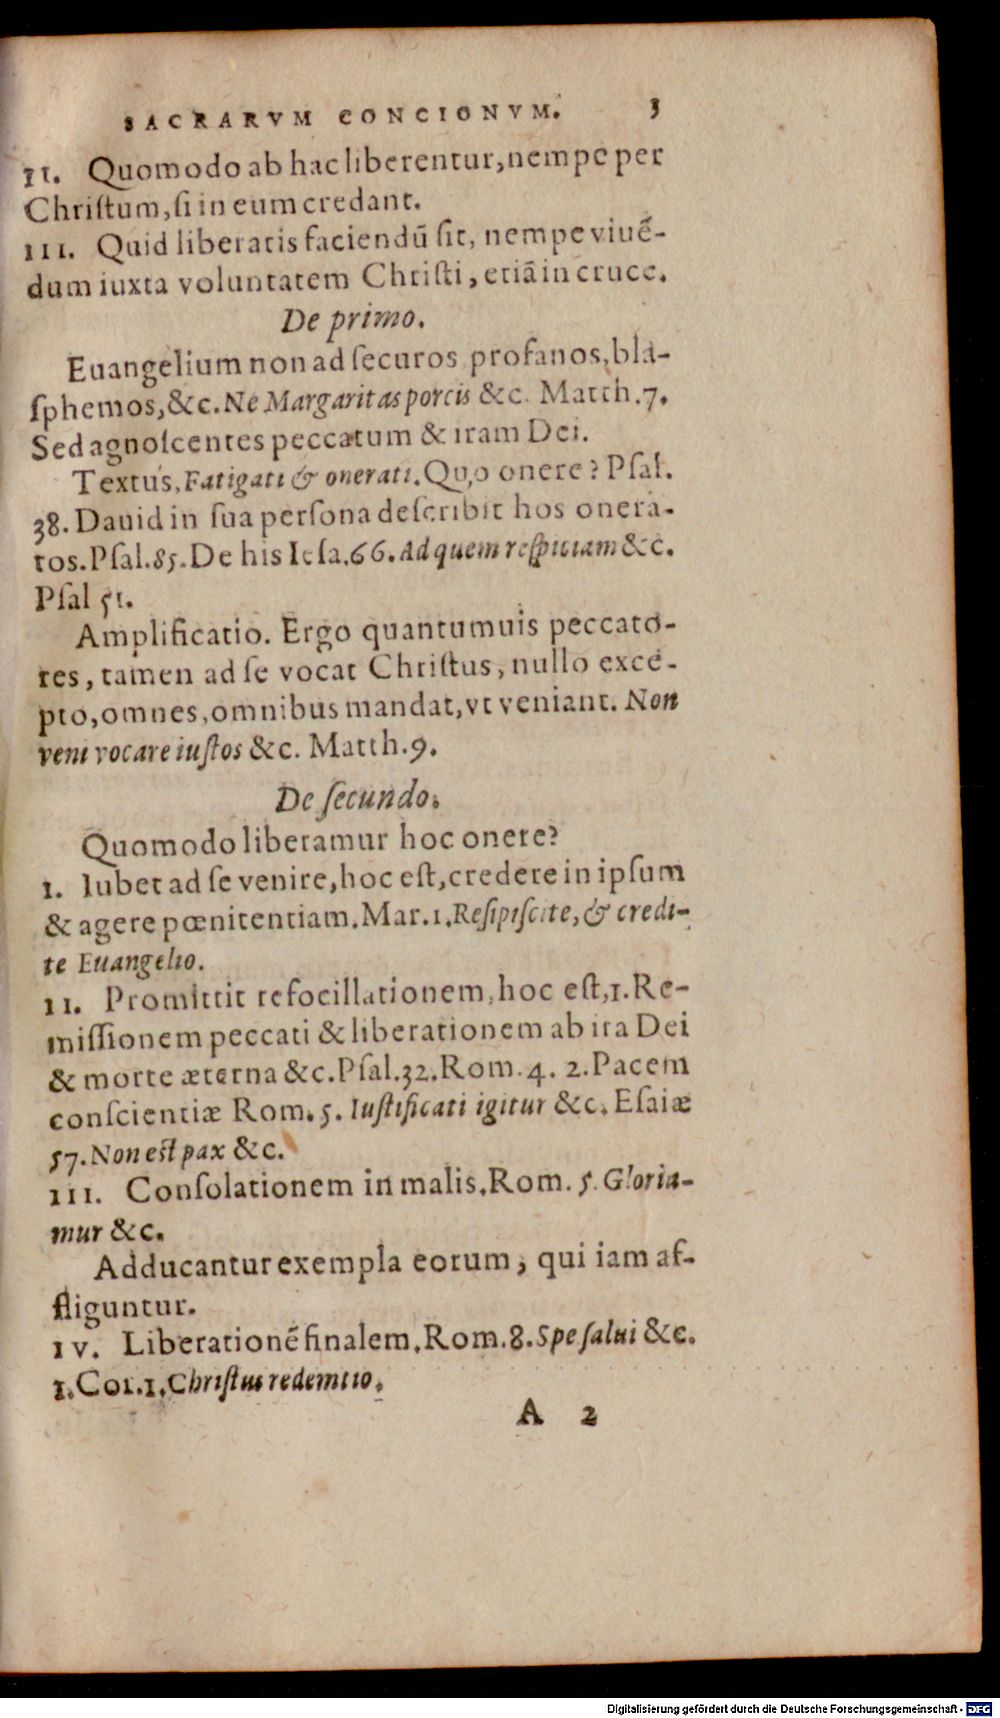 SACRARVM CONCIONVM. 3
II. Quomodo ab hac liberentur, nempe per
Chriſtum, ſi in eum credant.
III. Quid liberatis faciendũ ſit, nempe viuẽ-
dum iuxta voluntatem Chriſti, etiã in cruce.
De primo.
Euangelium non ad ſecuros profanos, bla-
ſphemos, &c. Ne Margaritas porcis &c. Matth. 7.
Sed agnoſcentes peccatum & iram Dei.
Textus, Fatigati & onerati. Quo onere? Pſal.
38. Dauid in ſua perſona deſcribit hos onera-
tos. Pſal. 85. De his Ieſa. 66. Ad quem reſpiciam &c.
Pſal 51.
Amplificatio. Ergo quantumuis peccato-
res, tamen ad ſe vocat Chriſtus, nullo exce-
pto, omnes, omnibus mandat, vt veniant. Non
veni vocare iuſtos &c. Matth. 9.
De ſecundo.
Quomodo liberamur hoc onere?
I. Iubet ad ſe venire, hoc eſt, credere in ipſum
& agere pœnitentiam. Mar. 1. Reſipiſcite, & credi-
te Euangelio.
II. Promittit refocillationem, hoc eſt, 1. Re-
miſſionem peccati & liberationem ab ira Dei
& morte æterna &c. Pſal. 32. Rom. 4. 2. Pacem
conſcientiæ Rom. 5. Iuſtificati igitur &c. Eſaiæ
57. Non eſt pax &c.
III. Conſolationem in malis. Rom. 5. Gloria-
mur &c.
Adducantur exempla eorum, qui iam af-
fliguntur.
IV. Liberationẽ finalem. Rom. 8. Spe ſalui &c.
1. Cor. 1. Chriſtus redemtio.
A 2
Digitalisierung gefördert durch die Deutsche Forschungsgemeinschaft - DFG